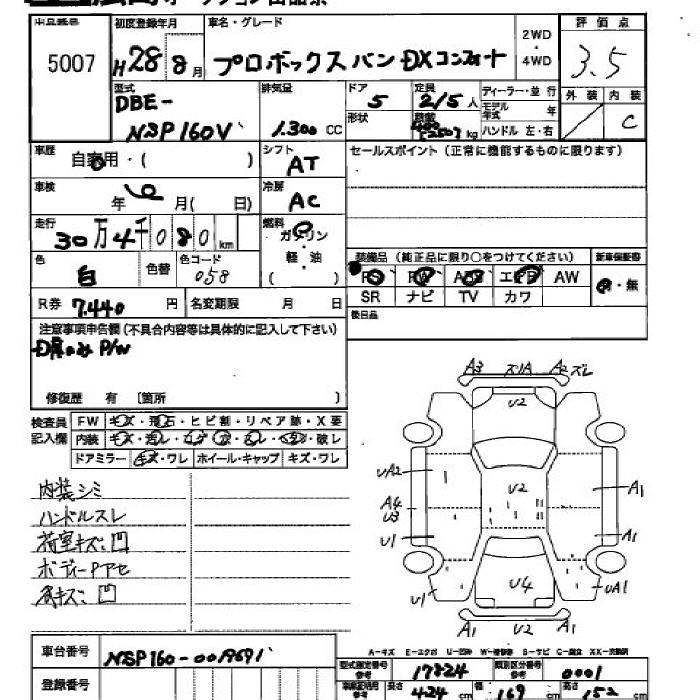 出品番号 初度登録年月 車名・グレード 2WD・4WD 評価点
5007 H28 8月 プロボックスバン DXコンフォート 3.5
型式 排気量 ドア 定員 ディーラー・並行 外装 内装
DBE- 5 2/5人 モデル年式 年
NSP160V 1.300 CC 形状 積載 kg ハンドル 左・右 C
車歴 自家用・( ) シフト AT セールスポイント(正常に機能するものに限ります)
車検 年 月( 日) 冷房 AC
走行 30万4千080km 燃料 ガソリン
軽・油
( )
色 白 色替 色コード 058
装備品(純正品に限り○をつけてください) 新車保証書
PS PW エアB AW 有・無
SR ナビ TV カワ
R券 7.440円 名変期限 月 日 後日品
注意事項申告欄(不具合内容等は具体的に記入して下さい)
P/W
修復歴 有 〔箇所 〕
検査員記入欄 FW キズ・飛石・ヒビ割・リペア跡・X要
内装 キズ・破レ
ドアミラー キズ・ワレ ホイール・キャップ キズ・ワレ
内装シミ
ハンドルスレ
荷室キズ凹
ボディーPアセ
キズ凹
A3 ズレA A2 ズレ
U2
UA2
U2
A4
U3
A1
U1
A1
U4
U1
UA1
A1 U2 A1
A-キズ E-エクボ U-凹み W-補修跡 S-サビ C-腐食 XX-交換済
車台番号 NSP160-0019691
型式指定番号 参考 17824 類別区分番号 参考 0001
登録番号 長さ 424 cm 幅 169 cm 高さ 152 cm